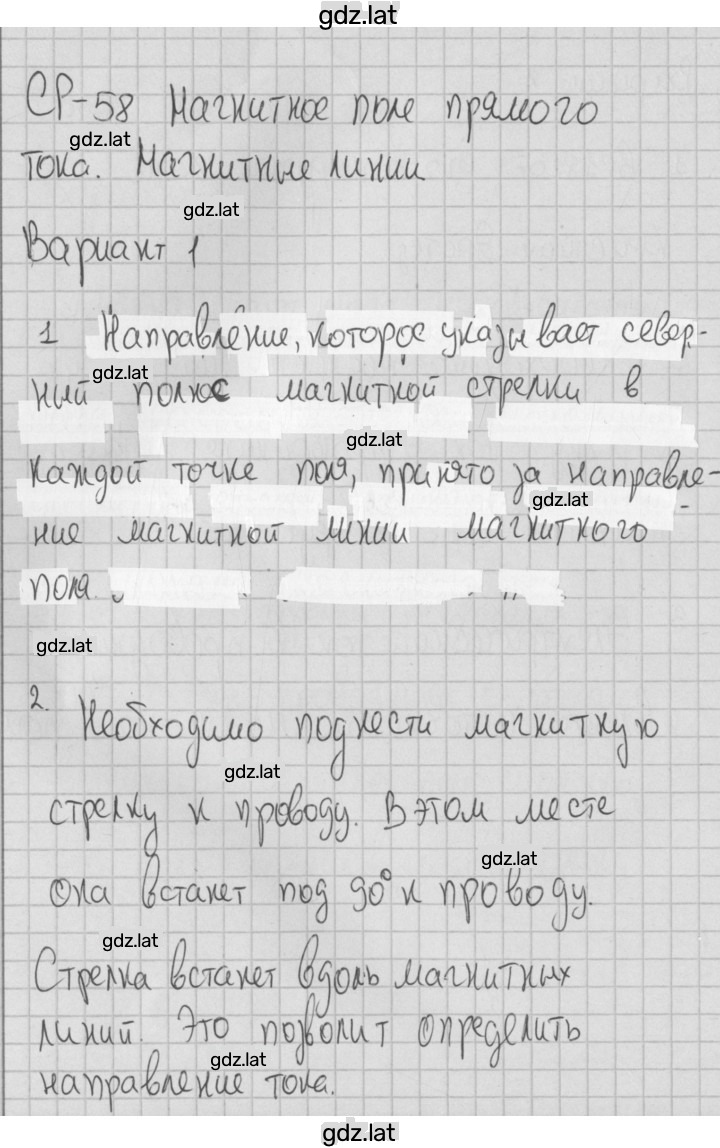 gdz.lat
СР-58 Магнитное поле прямого
gdz.lat
тока. Магнитные линии
gdz.lat
Вариант 1
1 Направление, которое указывает север-
gdz.lat
ный полюс магнитной стрелки в
gdz.lat
каждой точке поля, принято за направле-
gdz.lat
ние магнитной линии магнитного
поля.
gdz.lat
2. Необходимо поднести магнитную
gdz.lat
стрелку к проводу. В этом месте
gdz.lat
она встанет под 90° к проводу.
gdz.lat
Стрелка встанет вдоль магнитных
линий. Это позволит определить
gdz.lat
направление тока.
gdz.lat